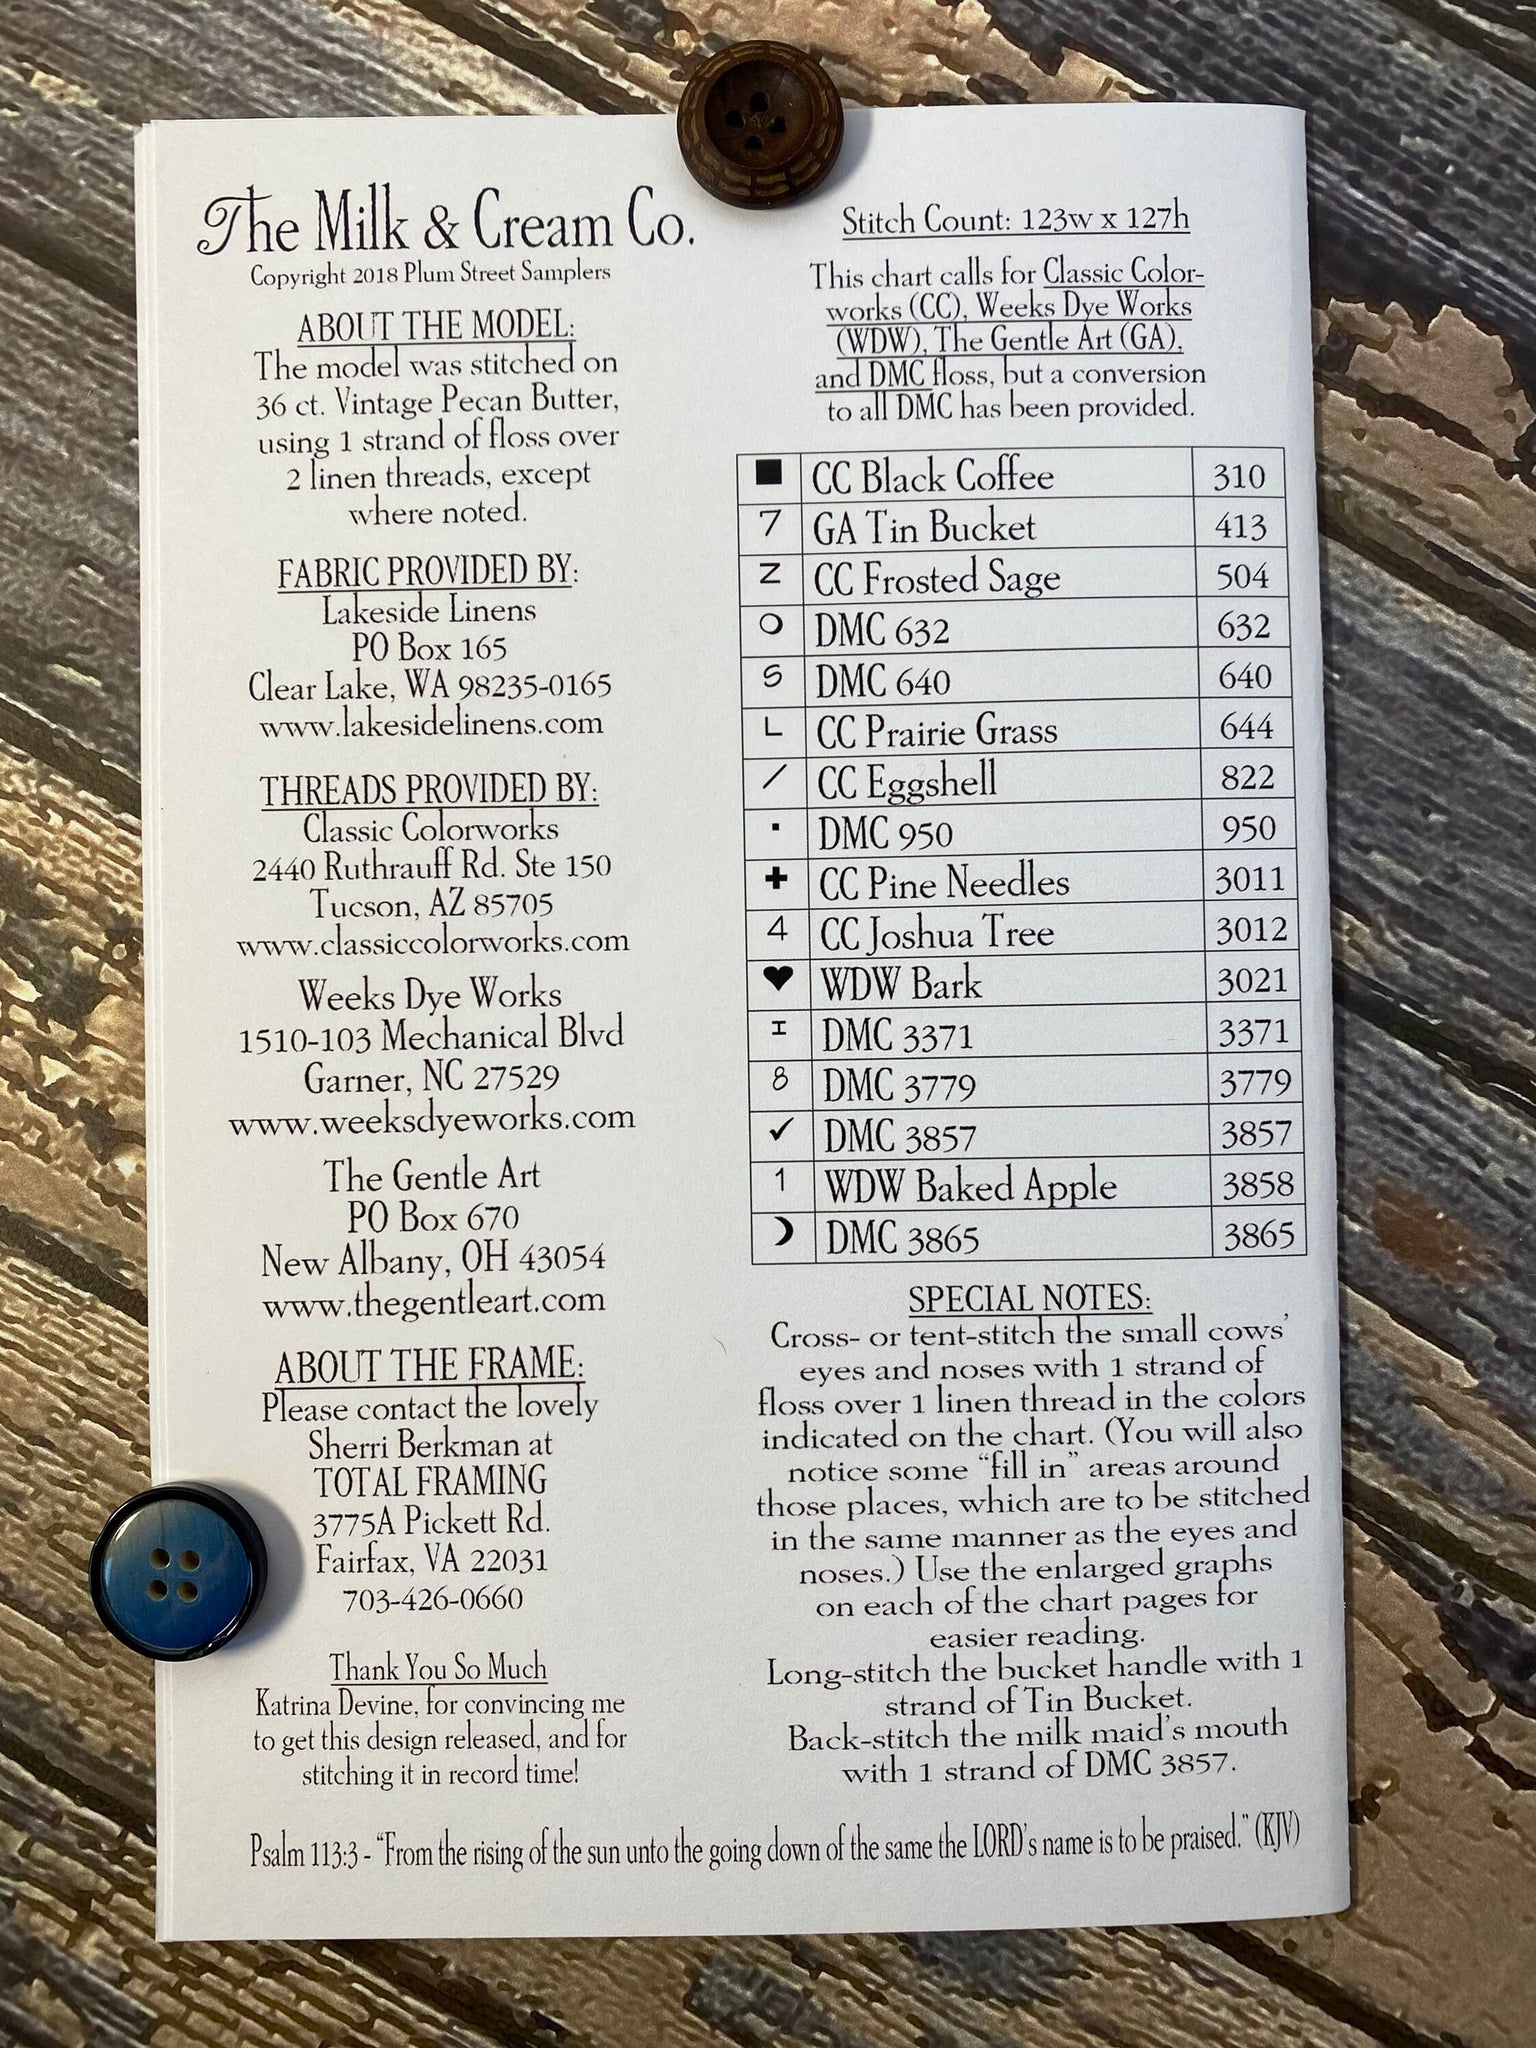 The Milk & Cream Co.
Copyright 2018 Plum Street Samplers
ABOUT THE MODEL:
The model was stitched on
36 ct. Vintage Pecan Butter,
using 1 strand of floss over
2 linen threads, except
where noted.
FABRIC PROVIDED BY:
Lakeside Linens
PO Box 165
Clear Lake, WA 98235-0165
www.lakesidelinens.com
THREADS PROVIDED BY:
Classic Colorworks
2440 Ruthrauff Rd. Ste 150
Tucson, AZ 85705
www.classiccolorworks.com
Weeks Dye Works
1510-103 Mechanical Blvd
Garner, NC 27529
www.weeksdyeworks.com
The Gentle Art
PO Box 670
New Albany, OH 43054
www.thegentleart.com
ABOUT THE FRAME:
Please contact the lovely
Sherri Berkman at
TOTAL FRAMING
3775A Pickett Rd.
Fairfax, VA 22031
703-426-0660
Thank You So Much
Katrina Devine, for convincing me
to get this design released, and for
stitching it in record time!
Stitch Count: 123w x 127h
This chart calls for Classic Color-
works (CC), Weeks Dye Works
(WDW), The Gentle Art (GA),
and DMC floss, but a conversion
to all DMC has been provided.
■ CC Black Coffee 310
7 GA Tin Bucket 413
Z CC Frosted Sage 504
O DMC 632 632
S DMC 640 640
L CC Prairie Grass 644
/ CC Eggshell 822
· DMC 950 950
✚ CC Pine Needles 3011
4 CC Joshua Tree 3012
♥ WDW Bark 3021
I DMC 3371 3371
8 DMC 3779 3779
✓ DMC 3857 3857
1 WDW Baked Apple 3858
☽ DMC 3865 3865
SPECIAL NOTES:
Cross- or tent-stitch the small cows'
eyes and noses with 1 strand of
floss over 1 linen thread in the colors
indicated on the chart. (You will also
notice some "fill in" areas around
those places, which are to be stitched
in the same manner as the eyes and
noses.) Use the enlarged graphs
on each of the chart pages for
easier reading.
Long-stitch the bucket handle with 1
strand of Tin Bucket.
Back-stitch the milk maid's mouth
with 1 strand of DMC 3857.
Psalm 113:3 - "From the rising of the sun unto the going down of the same the LORD's name is to be praised." (KJV)